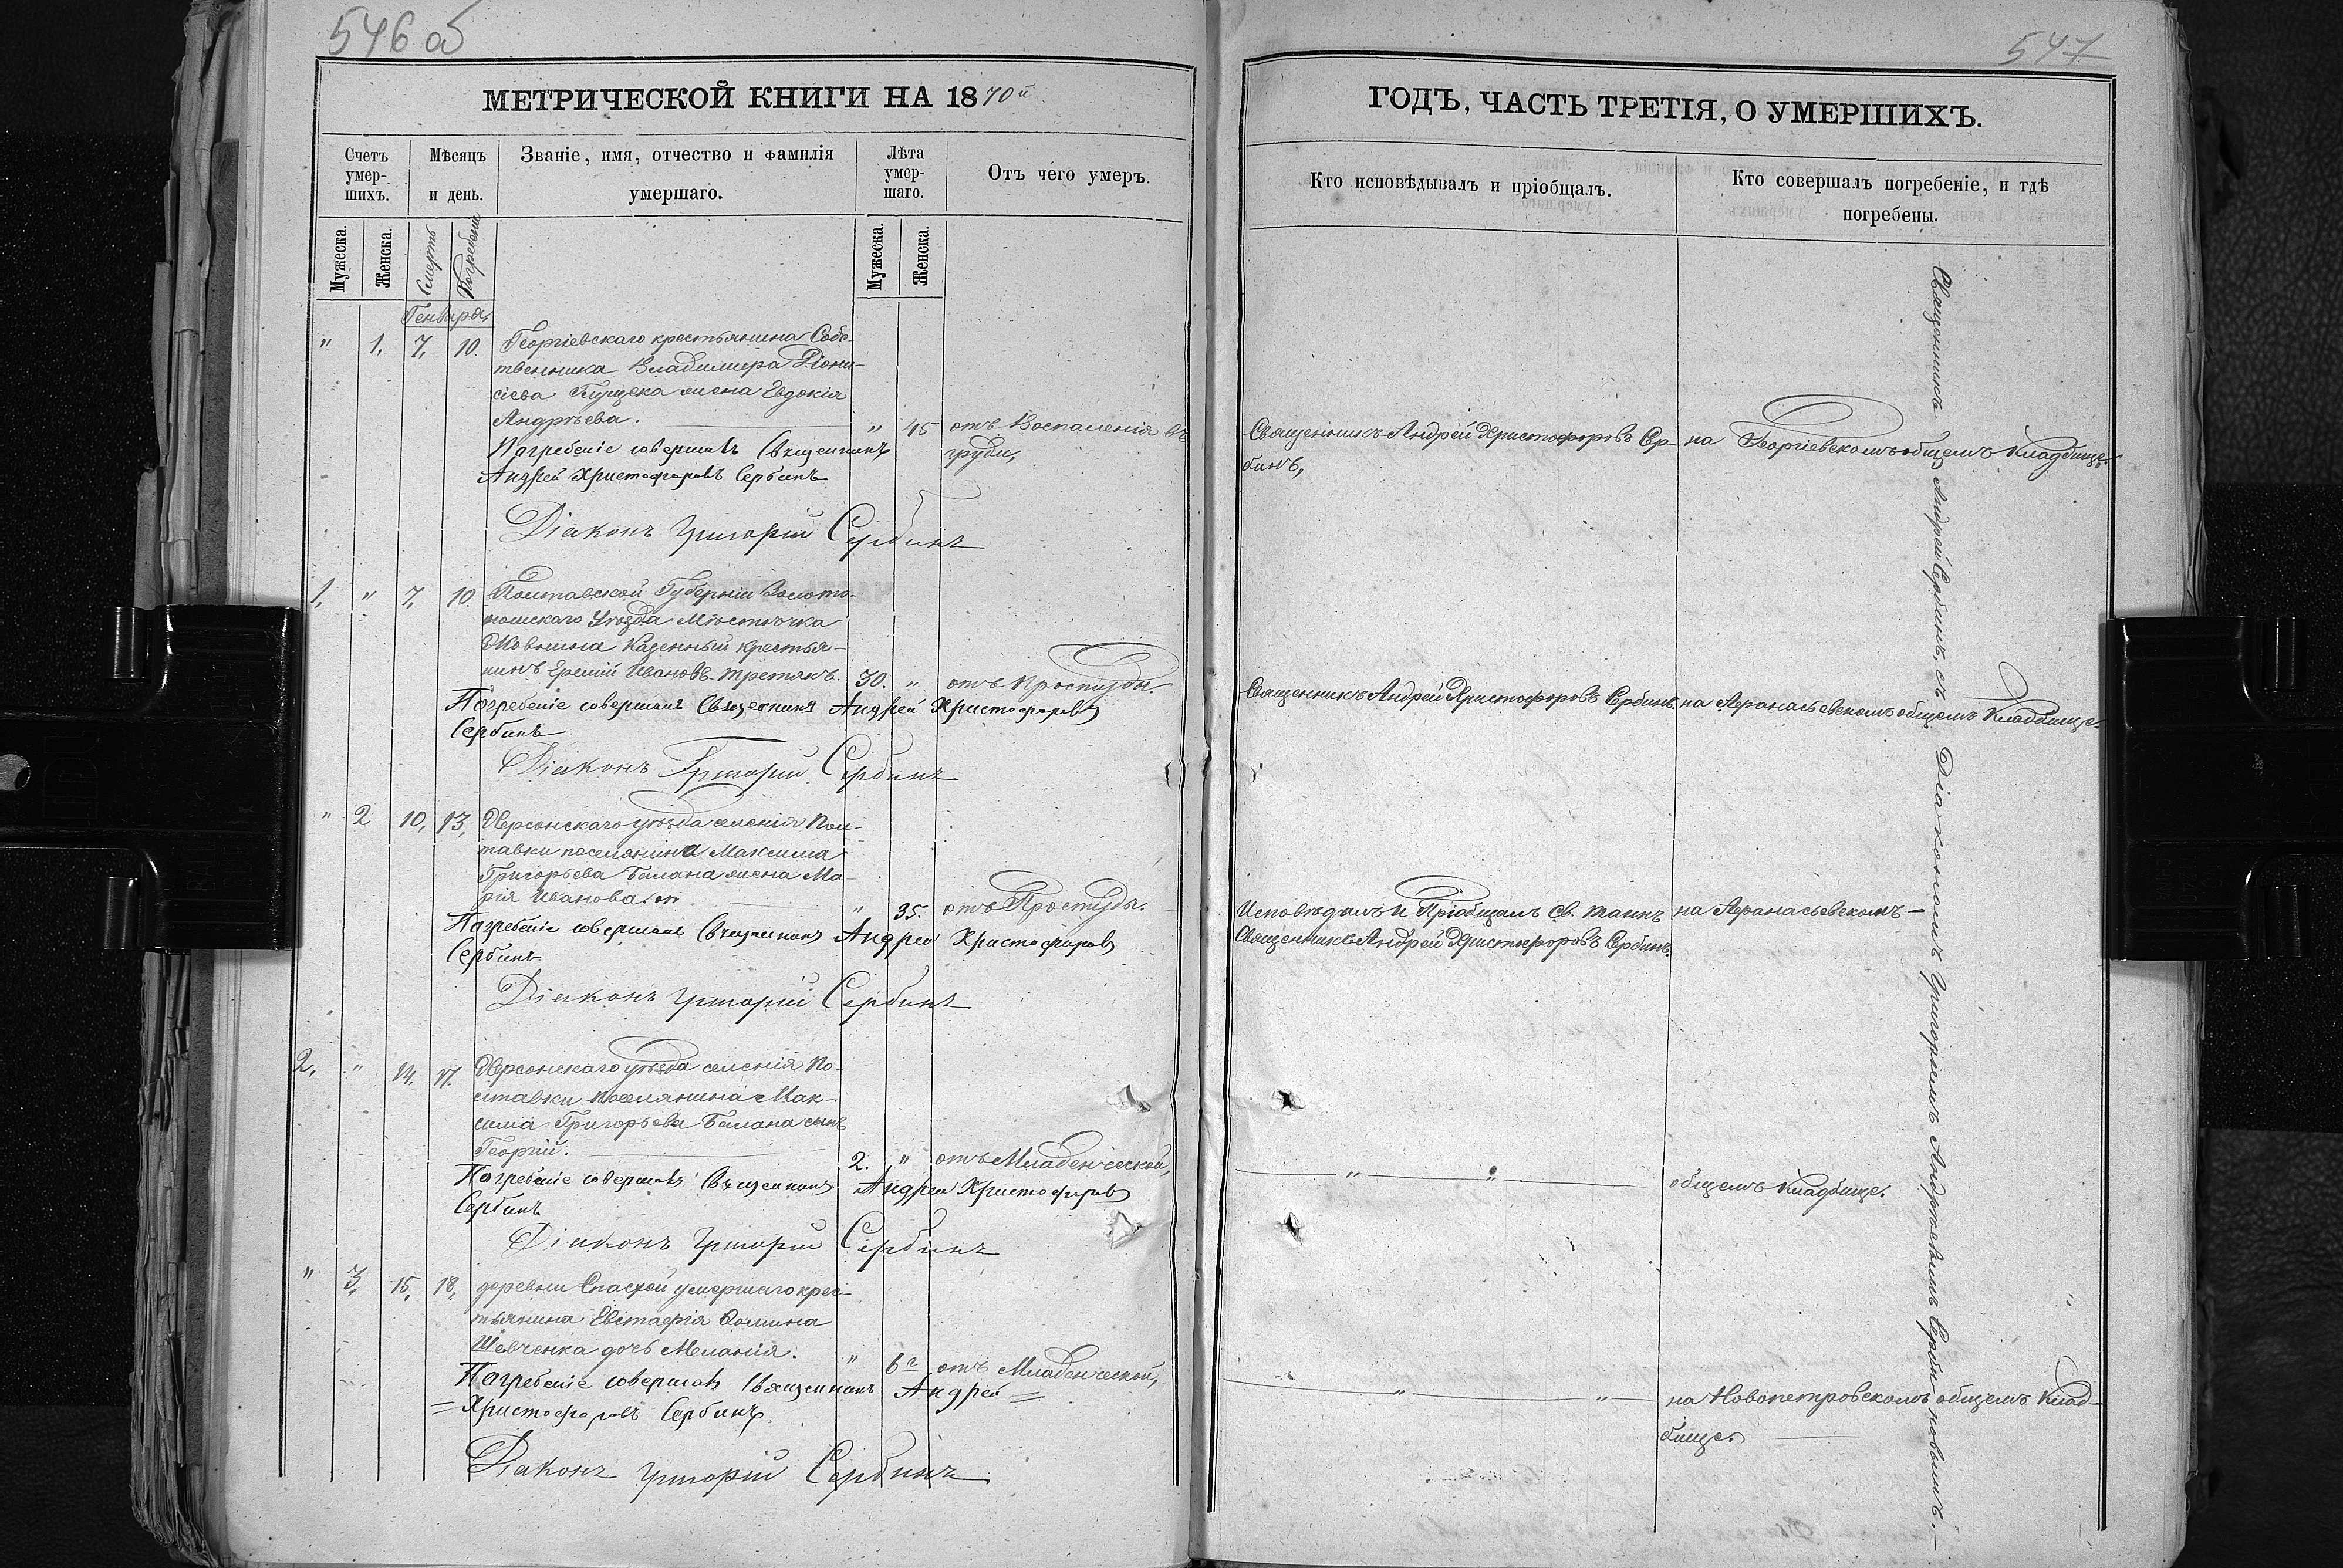 546 об
547
МЕТРИЧЕСКОЙ КНИГИ НА 1870й
ГОДЪ, ЧАСТЬ ТРЕТІЯ, О УМЕРШИХЪ.
Счетъ умер-шихъ.
Мѣсяцъ и день.
Званіе, имя, отчество и фамилія умершаго.
Лѣта умер-шаго.
Отъ чего умеръ.
Кто исповѣдывалъ и пріобщалъ.
Кто совершалъ погребеніе, и гдѣ погребены.
Мужеска.
Женска.
Смерть
Погребенія
Мужеска.
Женска.
Генваря
" 1, 7, 10. Георгіевскаго крестьянина Собс-
твенника Владимира Діони-
сіева жена Евдокія
Андрѣева. " 45 отъ Воспаленія въ
груди,
Священникъ Андрей Христофоровъ Сер-
бинъ,
на Георгіевскомъ общемъ Кладбище.
Погребеніе совершалъ Священникъ
Андрей Христофоровъ Сербинъ
Діаконъ Григорій Сербинъ
1, " 7, 10. Полтавской Губерніи Золото-
ношскаго Уѣзда Мѣстѣчка
Казенный крестья-
нинъ Еремій Ивановъ Третякъ. 30. " отъ Простуды.
Священникъ Андрей Христофоровъ Сербинъ
на Афанасьевскомъ общемъ Кладбище.
Погребеніе совершалъ Священникъ Андрей Христофоровъ
Сербинъ
Діаконъ Григорій Сербинъ
" 2 10, 13, Херсонскаго уѣзда селенія Пол-
тавки поселянина Максима
Григорьева Балана жена Ма-
рія Иванова " 35. отъ Простуды.
Исповѣдалъ и Пріобщалъ Св. таинъ
Священникъ Андрей Христофоровъ Сербинъ.
на Афанасьевскомъ –
Погребеніе совершалъ Священникъ Андрей Христофоровъ
Сербинъ
Діаконъ Григорій Сербинъ
2, " 14. 17. Херсонскаго уѣзда селенія По-
лтавки поселянина Мак-
сима Григорьева Балана сынъ
Георгій. 2. " отъ Младенческой,
" "
общемъ Кладбище.
Погребеніе совершалъ Священникъ Андрей Христофоровъ
Сербинъ
Діаконъ Григорій Сербинъ
" 3, 15, 18, деревни Спаской умершаго крес-
тьянина Евстафія Фомина
Шевченка дочь Меланія. " 6 г отъ Младенческой,
" "
на Новопетровскомъ общемъ Клад-
бище.
Погребеніе совершалъ Священникъ Андрей =
= Христофоровъ Сербинъ.
Діаконъ Григорій Сербинъ
Священникъ Андрей Сербинъ, съ Діакономъ Григоріемъ Андрѣевымъ Сербиновымъ. –